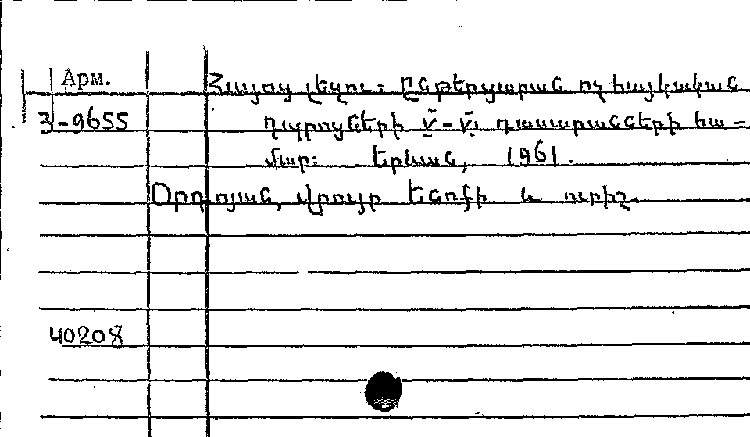 Арм.
Հայոց լեզու: Ընթերցարան ոչ հայկական
3-9655
դպրոցների V-VI դասարանների հա-
մար: Երևան, 1961.
Օրդոյան, Վրույր Ենոքի և ուրիշ.
40208